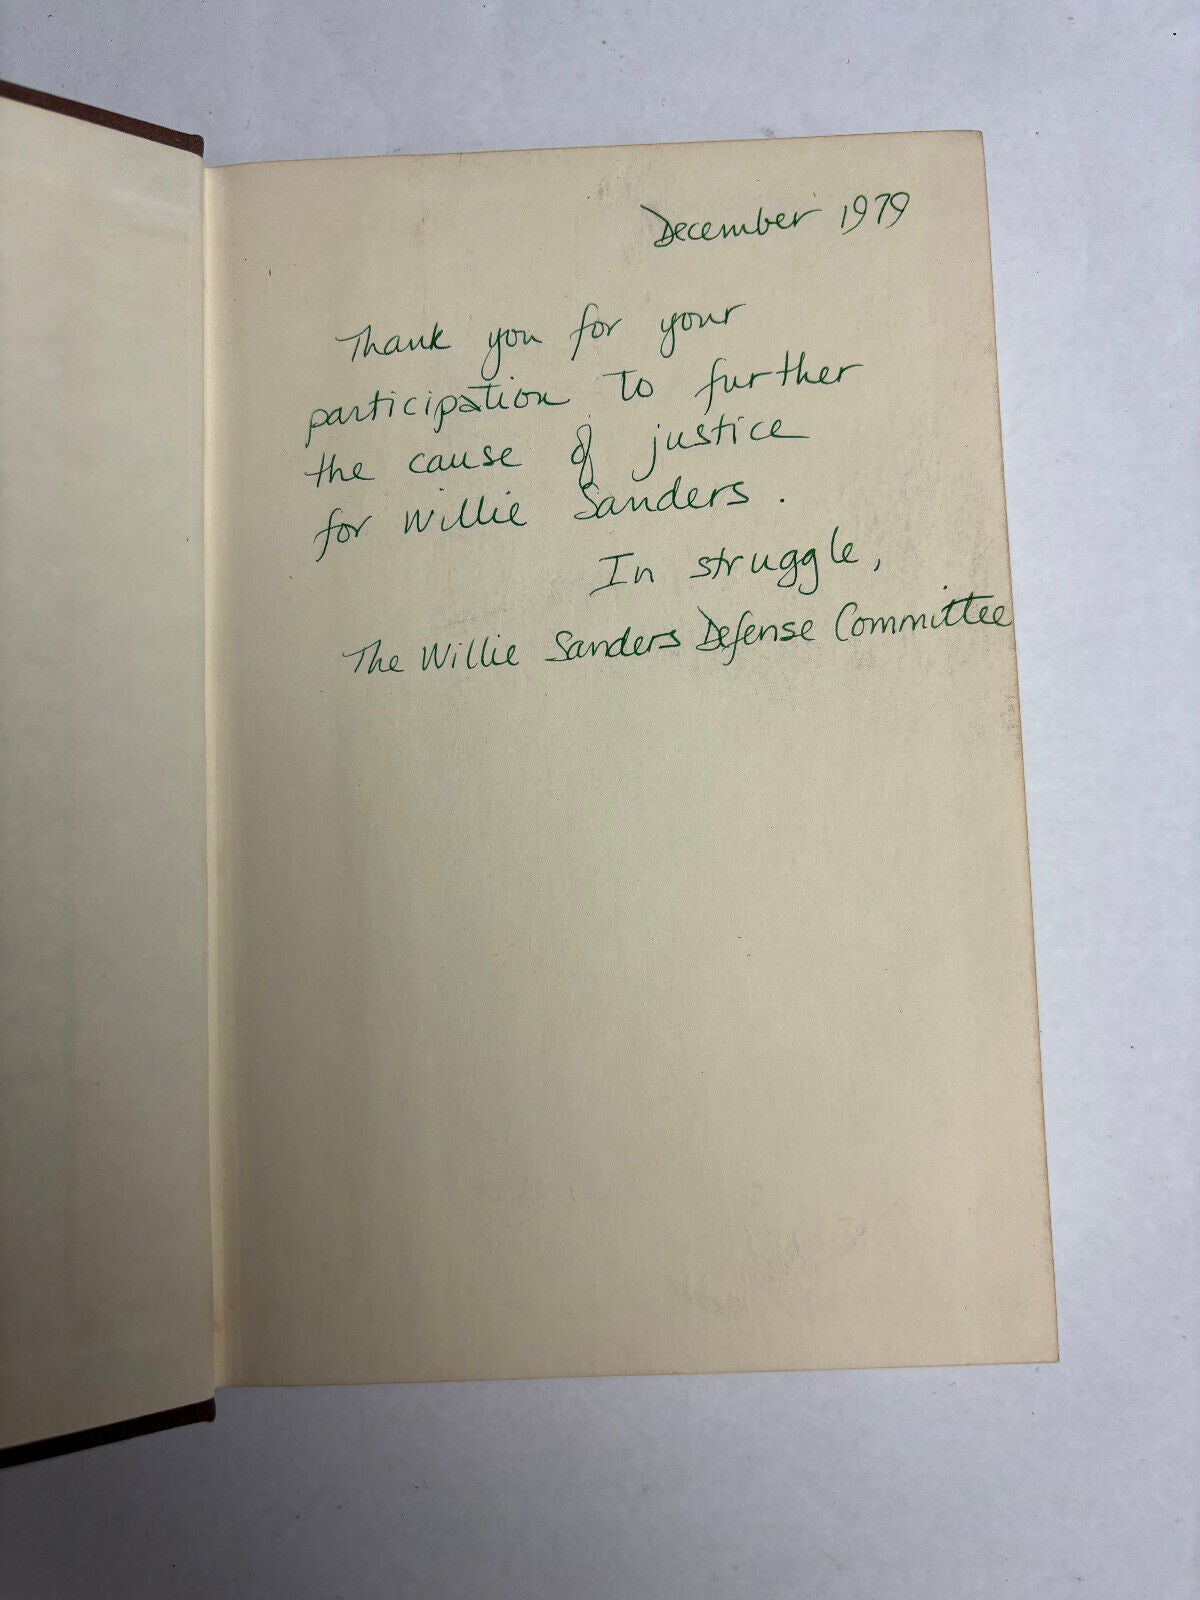 December 1979
Thank you for your
participation to further
the cause of justice
for Willie Sanders.
In struggle,
The Willie Sanders Defense Committee